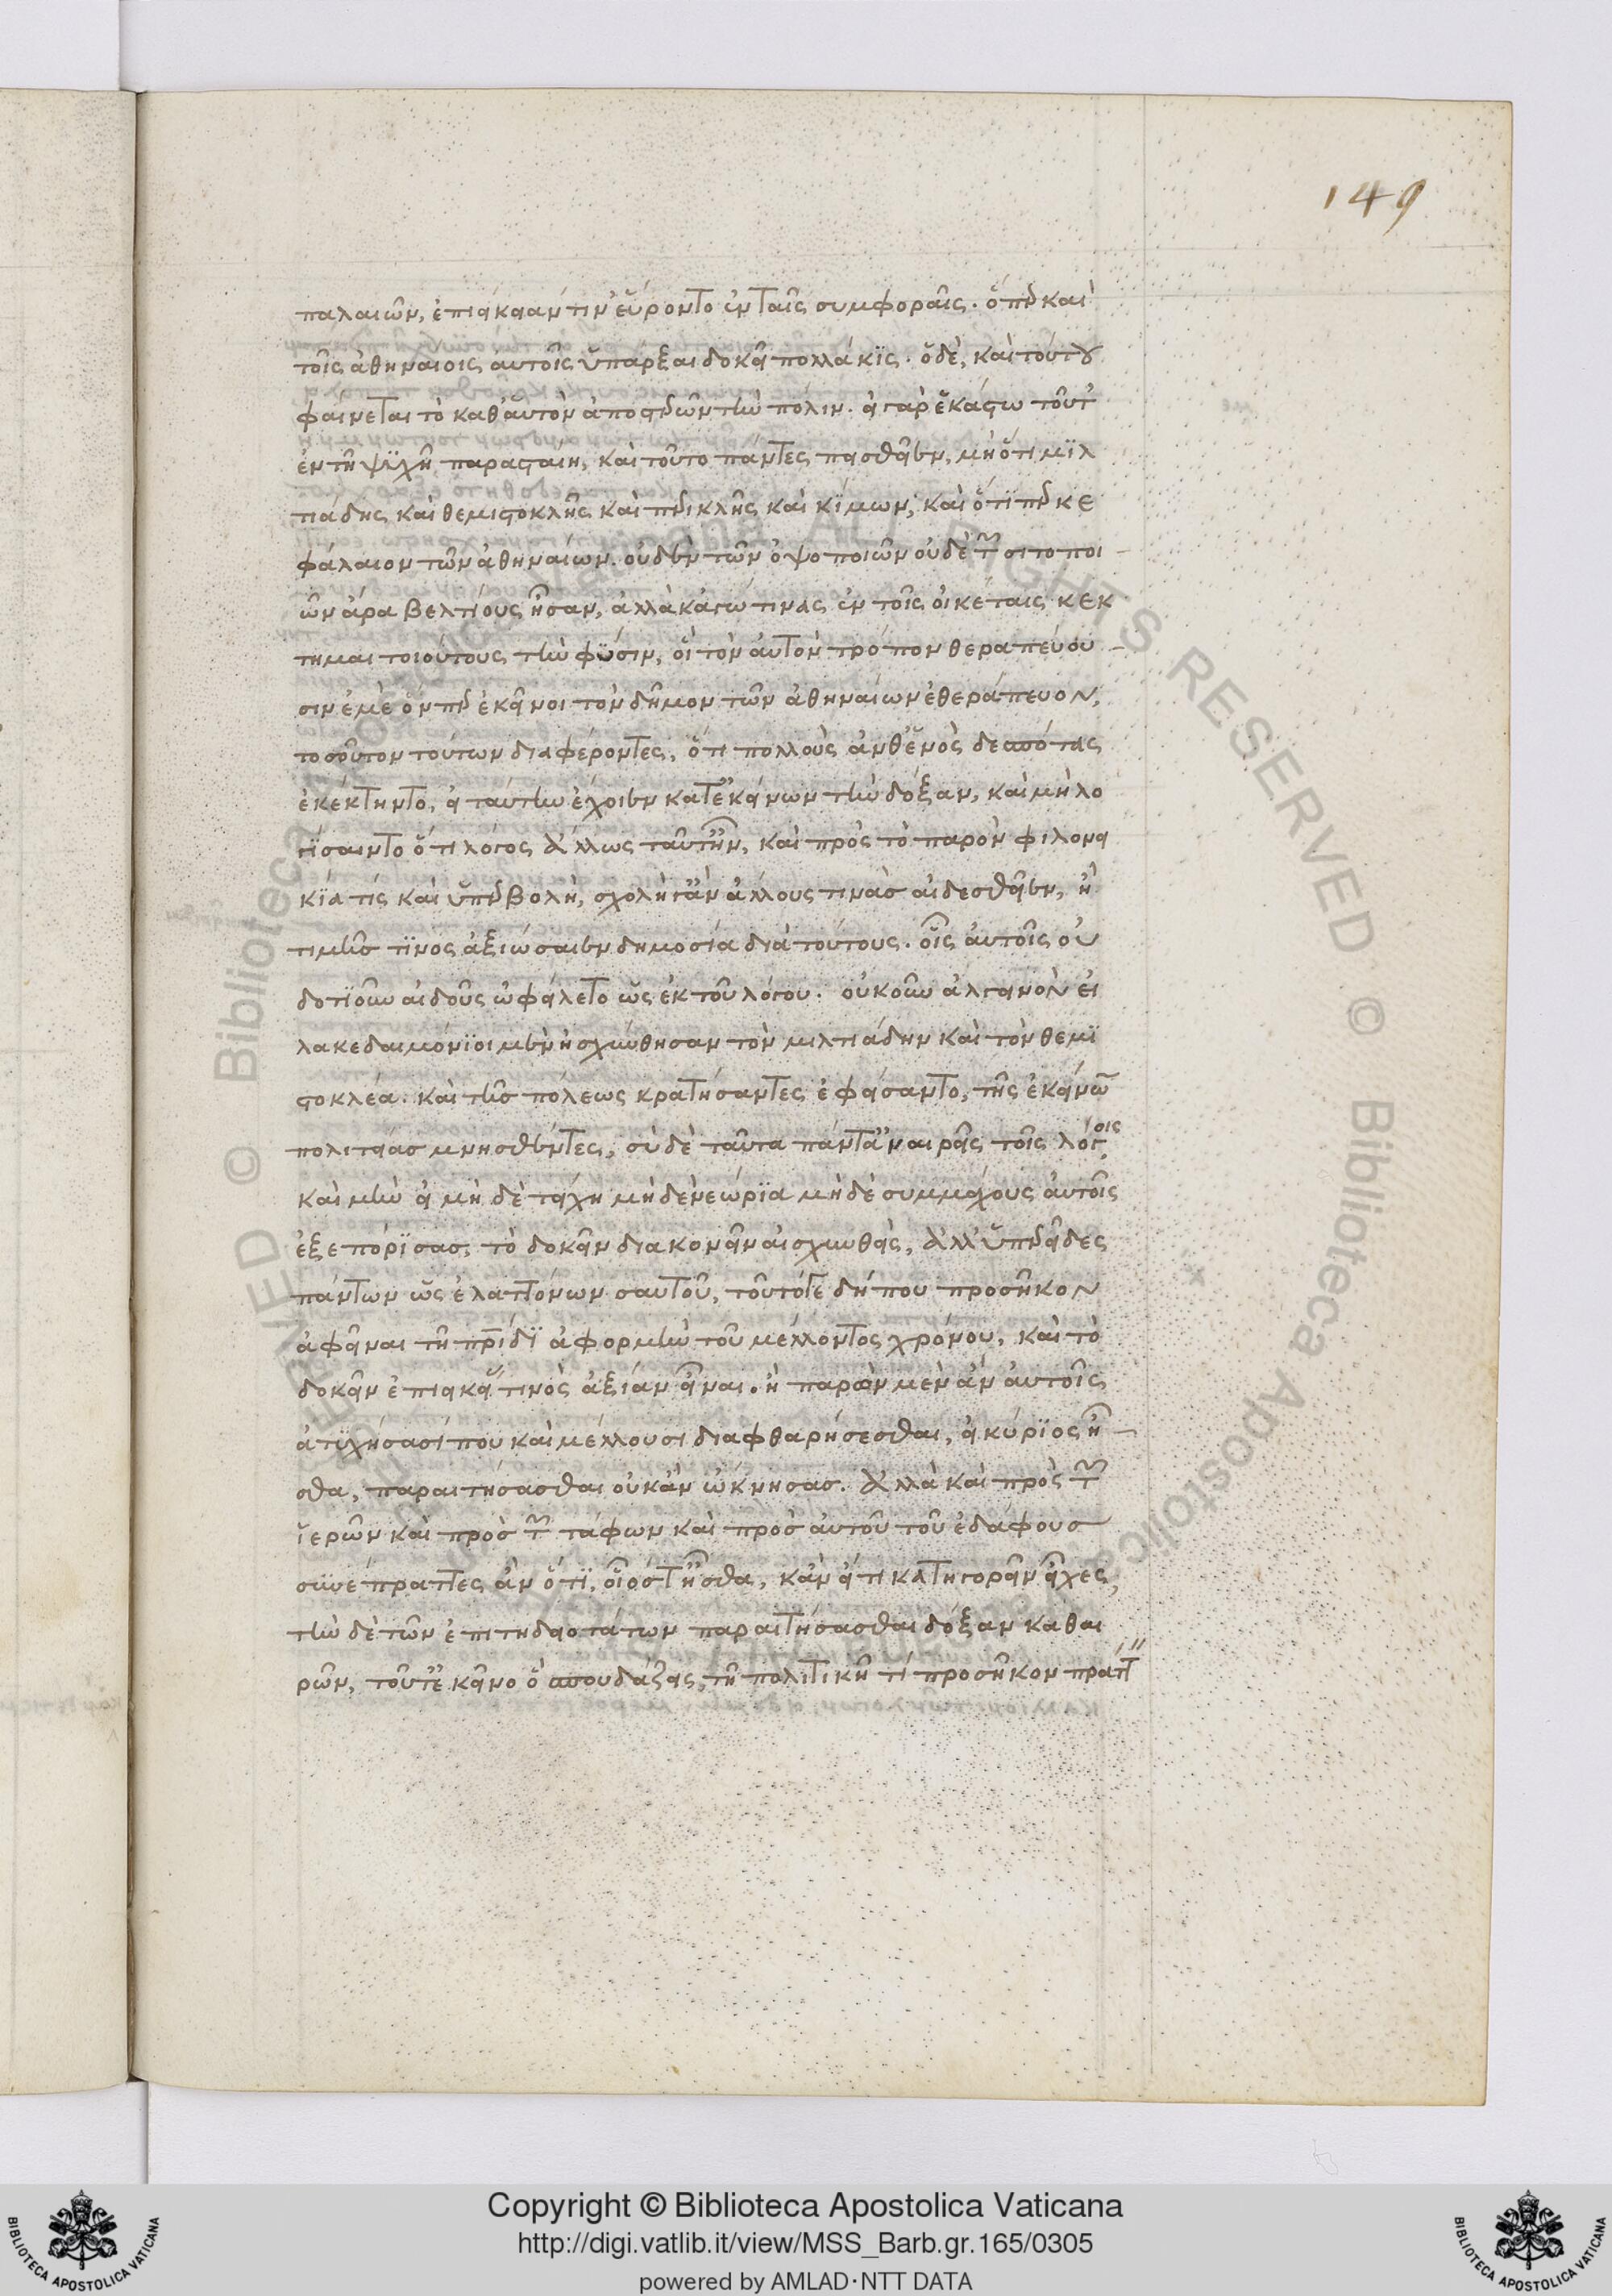 149
παλαιῶν, ἐπιείκειάν τιν' εὕροντο ἐν ταῖς συμφοραῖς. ὅπερ καὶ
τοῖς ἀθηναίοις αὐτοῖς ὑπάρξαι δοκεῖ πολλάκϊς. ὁ δὲ, καὶ τούτου
φαίνεται τὸ καθ' αὑτὸν ἀποστερῶν τὴν πόλιν. εἰ γὰρ ἑκάστω τοῦτ'
ἐν τῆ ψϋχῆ παρασταίη, καὶ τοῦτο πάντες πεισθεῖεν, μὴ ὅτι μϊλ
τιάδης καὶ θεμιστοκλῆς καὶ περικλῆς καὶ κίμων, καὶ ὅτϊπερ κε
φάλαιον τῶν ἀθηναίων. οὐδὲν τῶν ὀψοποιῶν οὐδὲ τῶν σιτοποι
ῶν ἄρα βελτίους ἦσαν, ἀλλὰ κἀγώ τινας ἐν τοῖς οἰκέταις κεκ
τημαι τοιούτους τὴν φύσιν, οἳ τὸν αὐτὸν τρόπον θεραπεύου
σιν ἐμὲ ὅνπερ ἐκεῖνοι τὸν δῆμον τῶν ἀθηναίων ἐθεράπευον,
τοσοῦτον τούτων διαφέροντες, ὅτι πολλοὺς ἀνθ' ἑνὸς δεσπότας
ἐκέκτηντο, εἰ ταύτην ἔχοιεν κατ' ἐκείνων τὴν δόξαν, καὶ μὴ λο
γίσαιντο ὅτι λόγος ἄλλως ταῦτ' ἦν, καὶ πρὸς τὸ παρὸν φιλονει
κία τίς καὶ ὑπερβολὴ, σχολῆ γ' ἂν ἄλλους τινὰσ αἰδεσθεῖεν, ἢ
τιμῆσ τϊνος ἀξιώσαιεν δημοσία διὰ τούτους. οἷς αὐτοῖς οὐ
δοτϊοῦν αἰδοῦς ὠφείλετο ὡς ἐκ τοῦ λόγου. οὐκοῦν ἀλγεινὸν εἰ
λακεδαιμόνϊοι μὲν ἠσχύνθησαν τὸν μιλτιάδην καὶ τὸν θεμϊ
στοκλέα. καὶ τῆσ πόλεως κρατήσαντες ἐφείσαντο, τῆς ἐκείνων
πολιτείασ μνησθέντες, σὺ δὲ ταῦτα πάντ' ἀναιρεῖς τοῖς λόγοις.
καὶ μὴν εἰ μὴ δὲ τείχη μὴ δὲ νεώρϊα μὴ δὲ συμμάχους αὐτοῖς
ἐξεπόρϊσασ, τὸ δοκεῖν διακονεῖν αἰσχυνθεὶς, ἀλλ' ὑπερεῖδες
πάντων ὡς ἐλαττόνων σαυτοῦ, τοῦτό γε δήπου προσῆκον
ἀφεῖναι τῆ πρίδϊ ἀφορμὴν τοῦ μέλλοντος χρόνου, καὶ τὸ
δοκεῖν ἐπιεικοῦς τινὸς ἀξίαν εἶναι. ἢ παρὼν μὲν ἂν αὐτοῖς
ἀτϋχήσασί που καὶ μέλλουσι διαφθαρήσεσθαι, εἰ κύρϊος ἦ
σθα, παραιτήσασθαι οὐκ ἂν ὤκνησασ. ἀλλὰ καὶ πρὸς τῶν
ἱερῶν καὶ πρὸσ τῶν τάφων καὶ πρὸσ αὐτοῦ τοῦ ἐδάφουσ
σϋνέπραττες ἂν ὅτϊ, οἷόσ τ' ἦσθα, κἂν εἴ τι κατηγορεῖν εἶχες,
τὴν δὲ τῶν ἐπιτηδειοτάτων παραιτήσασθαι δόξαν καθαι
ρῶν, τοῦτ' ἐκεῖνο ὃ σπουδάζεις, τῆ πολιτικῆ τί προσῆκον πράττ
Copyright © Biblioteca Apostolica Vaticana
http://digi.vatlib.it/view/MSS_Barb.gr.165/0305
powered by AMLAD·NTT DATA